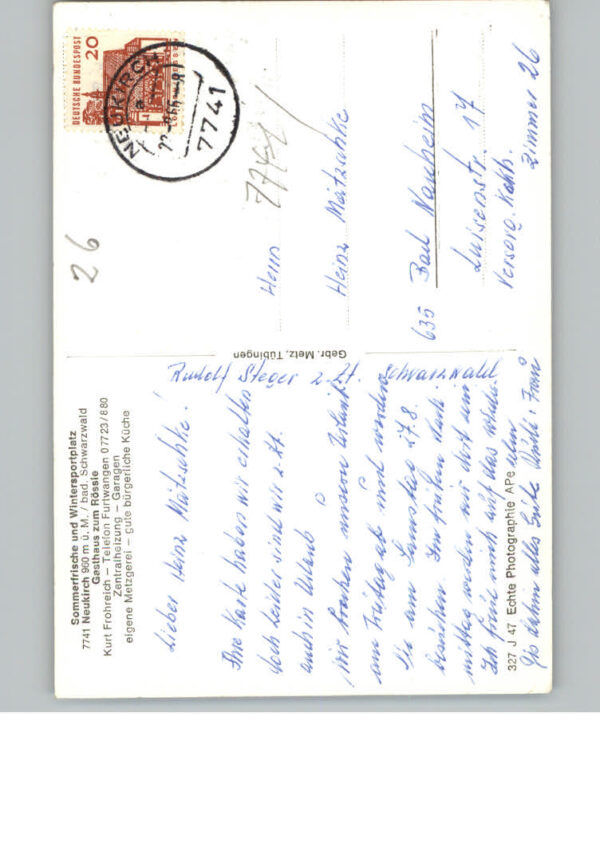 Sommerfrische und Wintersportplatz
7741 Neukirch 960 m ü. M. / bad. Schwarzwald
Gasthaus zum Rössle
Kurt Frohreich – Telefon Furtwangen 0 77 23 / 8 80
Zentralheizung – Garagen
eigene Metzgerei – gute bürgerliche Küche
Rudolf Steger z. Zt. Schwarzwald
Lieber Heinz Mätzschke!
Ihre Karte haben wir erhalten
doch leider sind wir z. Zt.
auch in Urlaub
Wir brechen unseren Urlaub
am Freitag ab und werden
Sie am Samstag 27.8.
besuchen. Im frühen Nach-
mittag werden wir dort sein
Ich freue mich auf das
Bis dahin alles Gute
327 J 47 Echte Photographie APe
Gebr. Metz, Tübingen
26
DEUTSCHE BUNDESPOST
20
NEUKIRCH
7741
7741
Herrn
Heinz Mätzschke
635 Bad Nauheim
Luisenstr. 17
Versorg. Kkh.
Zimmer 26